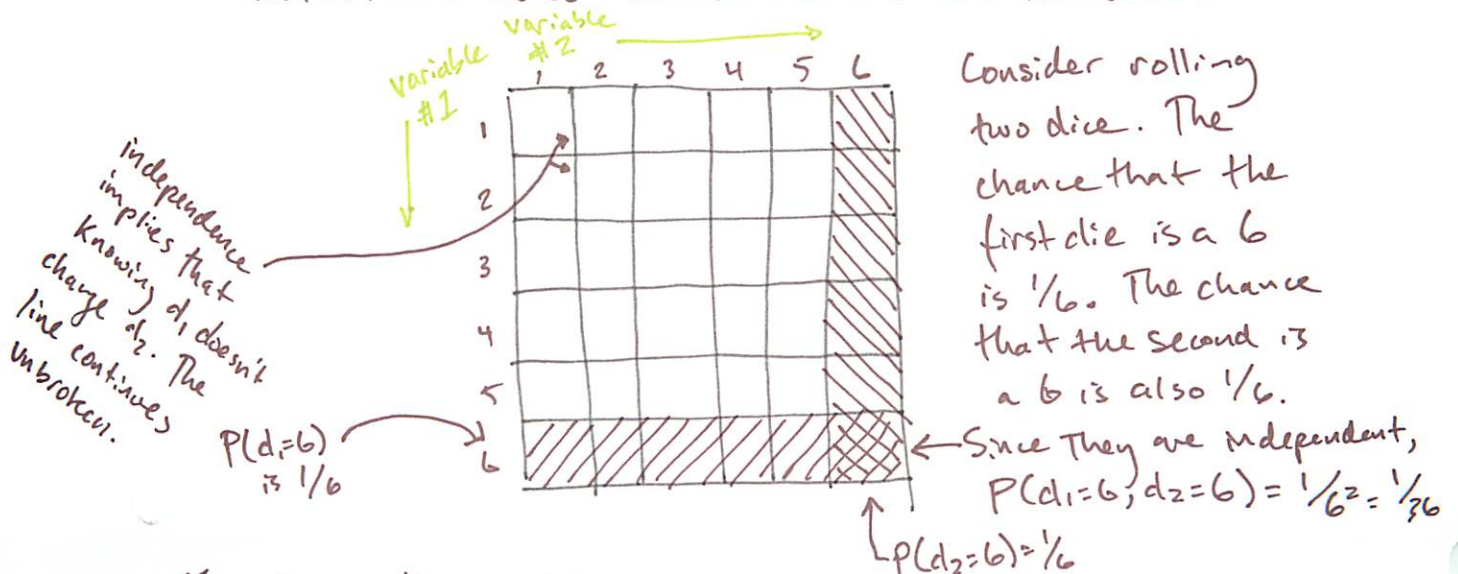 variable
#2
variable
#1
1 2 3 4 5 6
1
2
3
4
5
6
independence
implies that
knowing d₁ doesn't
change d₂. The
line continues
unbroken.
P(d₁=6)
is 1/6
Consider rolling
two dice. The
chance that the
first die is a 6
is 1/6. The chance
that the second is
a 6 is also 1/6.
Since They are independent,
P(d₁=6; d₂=6) = 1/6² = 1/36
P(d₂=6)=1/6